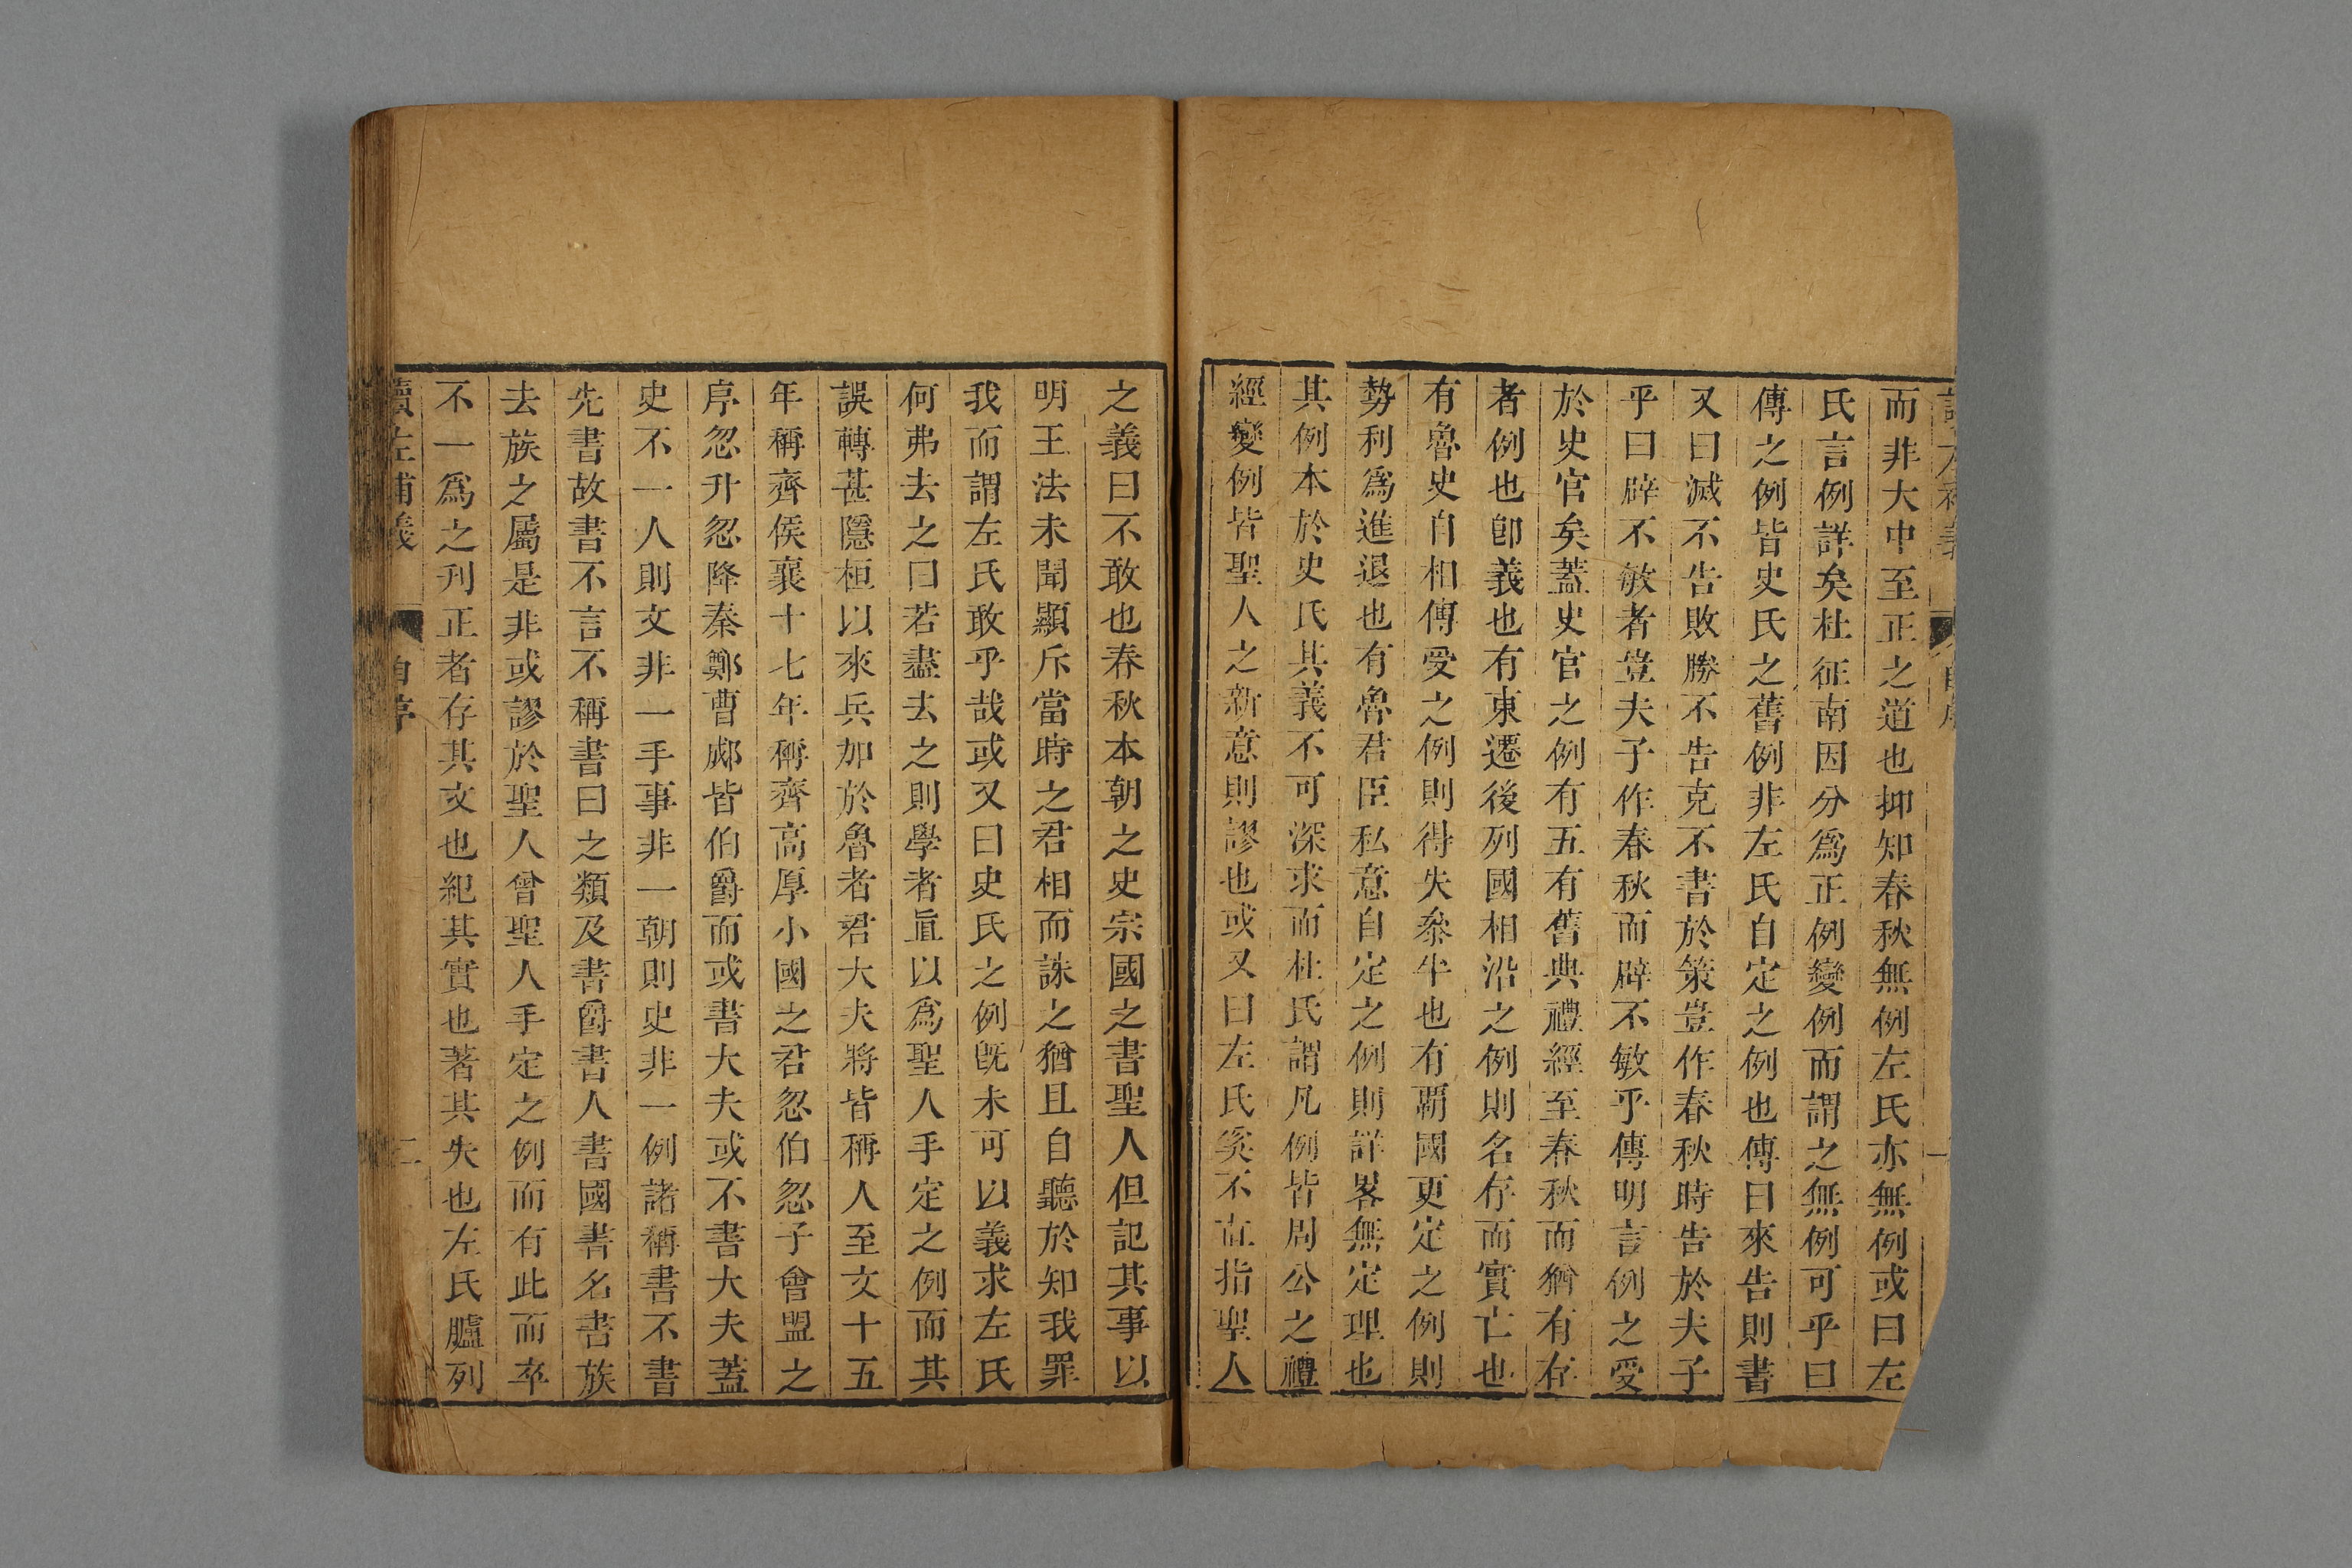 而非大中至正之道也抑知春秋無例左氏亦無例或曰左
氏言例詳矣杜征南因分爲正例變例而謂之無例可乎曰
傳之例皆史氏之舊例非左氏自定之例也傳曰來告則書
又曰滅不告敗勝不告克不書於策豈作春秋時告於夫子
乎曰辟不敏者豈夫子作春秋而辟不敏乎傳明言例之受
於史官矣蓋史官之例有五有舊典禮經至春秋而猶有存
者例也卽義也有東遷後列國相沿之例則名存而實亡也
有魯史自相傳受之例則得失叅半也有覇國更定之例則
勢利爲進退也有魯君臣私意自定之例則詳畧無定理也
其例本於史氏其義不可深求而杜氏謂凡例皆周公之禮
經變例皆聖人之新意則謬也或又曰左氏奚不直指聖人
之義曰不敢也春秋本朝之史宗國之書聖人但記其事以
明王法未聞顯斥當時之君相而誅之猶且自聽於知我罪
我而謂左氏敢乎哉或又曰史氏之例旣未可以義求左氏
何弗去之曰若盡去之則學者直以爲聖人手定之例而其
誤轉甚隱桓以來兵加於魯者君大夫將皆稱人至文十五
年稱齊侯襄十七年稱齊高厚小國之君忽伯忽子會盟之
序忽升忽降秦鄭曹郕皆伯爵而或書大夫或不書大夫蓋
史不一人則文非一手事非一朝則史非一例諸稱書不書
先書故書不言不稱書曰之類及書爵書人書國書名書族
去族之屬是非或謬於聖人曾聖人手定之例而有此而卒
不一爲之刋正者存其文也紀其實也著其失也左氏臚列
讀左補義 自序 二